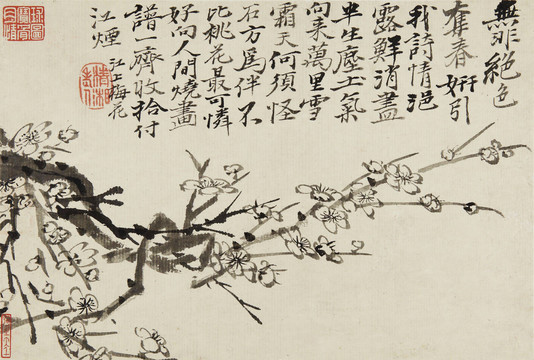 無非絕色
奪春妍引
我詩情浥
露鮮消盡
半生塵土氣
向來萬里雪
霜天何須怪
石方為伴不
比桃花最可憐
好向人間燒畫
譜一齊收拾付
江煙
江上梅花